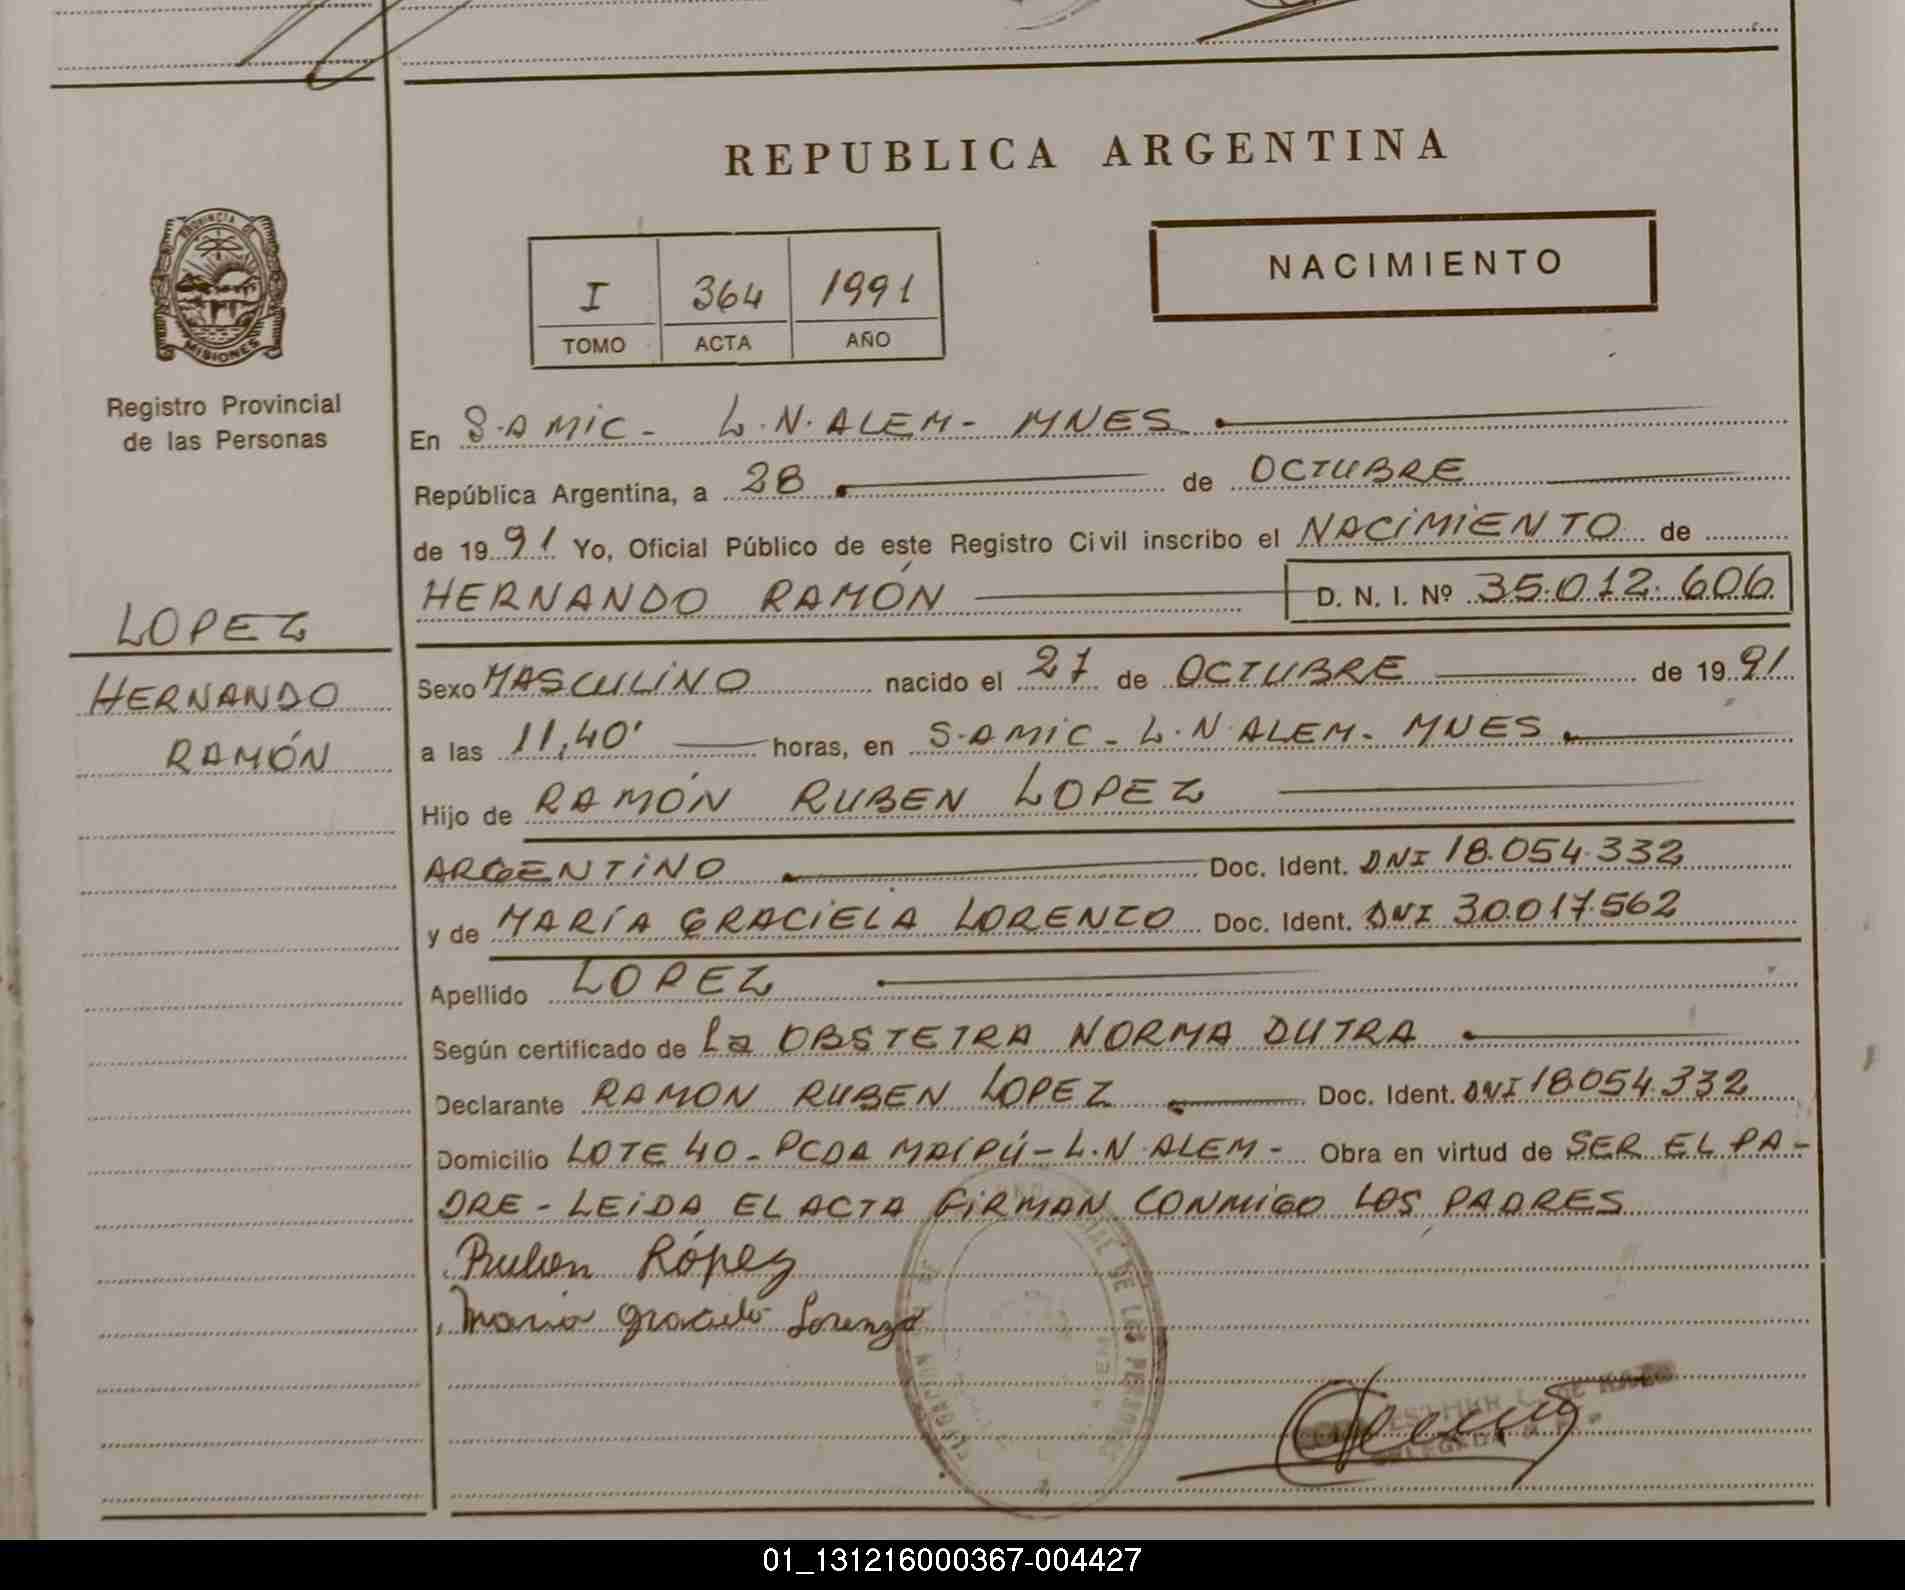 REPUBLICA ARGENTINA
PROVINCIA DE
MISIONES
Registro Provincial
de las Personas
I 364 1991
TOMO ACTA AÑO
NACIMIENTO
En S.AMIC- L.N.ALEM- MNES
República Argentina, a 28 de OCTUBRE
de 1991 Yo, Oficial Público de este Registro Civil inscribo el NACIMIENTO de
HERNANDO RAMÓN D. N. I. Nº 35.012.606
LOPEZ
HERNANDO
RAMÓN
Sexo MASCULINO nacido el 27 de OCTUBRE de 1991
a las 11,40' horas, en S.AMIC- L.N.ALEM- MNES
Hijo de RAMÓN RUBEN LOPEZ
ARGENTINO Doc. Ident. DNI 18.054.332
y de MARÍA GRACIELA LORENZO Doc. Ident. DNI 30.017.562
Apellido LOPEZ
Según certificado de La OBSTETRA NORMA DUTRA
Declarante RAMON RUBEN LOPEZ Doc. Ident. DNI 18.054.332
Domicilio LOTE 40- PCDA MAIPÚ- L.N.ALEM- Obra en virtud de SER EL PA-
DRE- LEIDA EL ACTA FIRMAN CONMIGO LOS PADRES
Ruben López
Maria Graciela Lorenzo
DE LAS PERSONAS
01_131216000367-004427